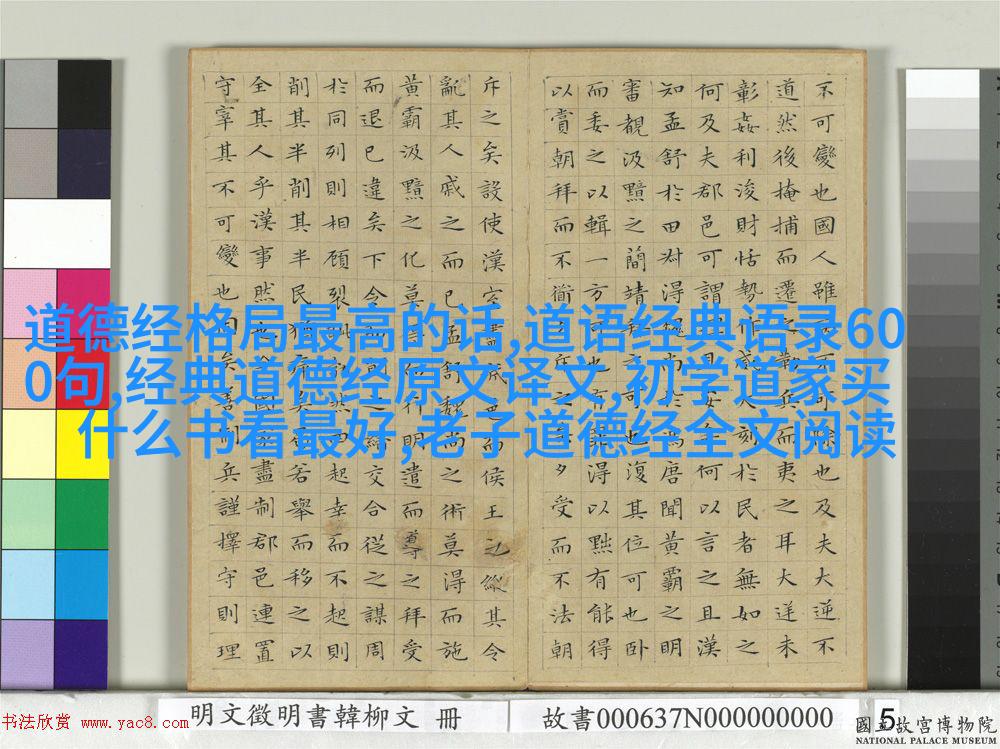 不可變也國人雖除也及夫大逆不
道然後掩捕而遷之勒兵而夷之耳大逆未
彰姦利浚財怙勢作威刻於民者無如之
何及夫郡邑可謂何以言之且漢
知孟舒於田叔得唐聞黃霸之明
審覩汲黯之簡靖可也復其位可也臥
而委之以輯一方得以黜有能得
以賞朝拜而不夕受而不法朝
斥之矣設使漢室而侯王之縱其令
亂其人戚之而已孟舒魏尚之術莫得而施
黃霸汲黯之化莫明譴而導之拜受
而退已違矣下令交合從之謀周
於同列則相顧裂起幸而不起則
削其半削其半民若舉而移之以
全其人乎漢事然國盡制郡邑連置
守宰其不可變也矣善制兵謹擇守則理
道德经格局最高的话,道语经典语录60
0句,经典道德经原文译文,初学道家买
什么书看最好,老子道德经全文阅读
明文徵明書韓柳文 冊
故書000637N000000000
5
國立故宮博物院
NATIONAL PALACE MUSEUM
书法欣赏 www.yac8.com